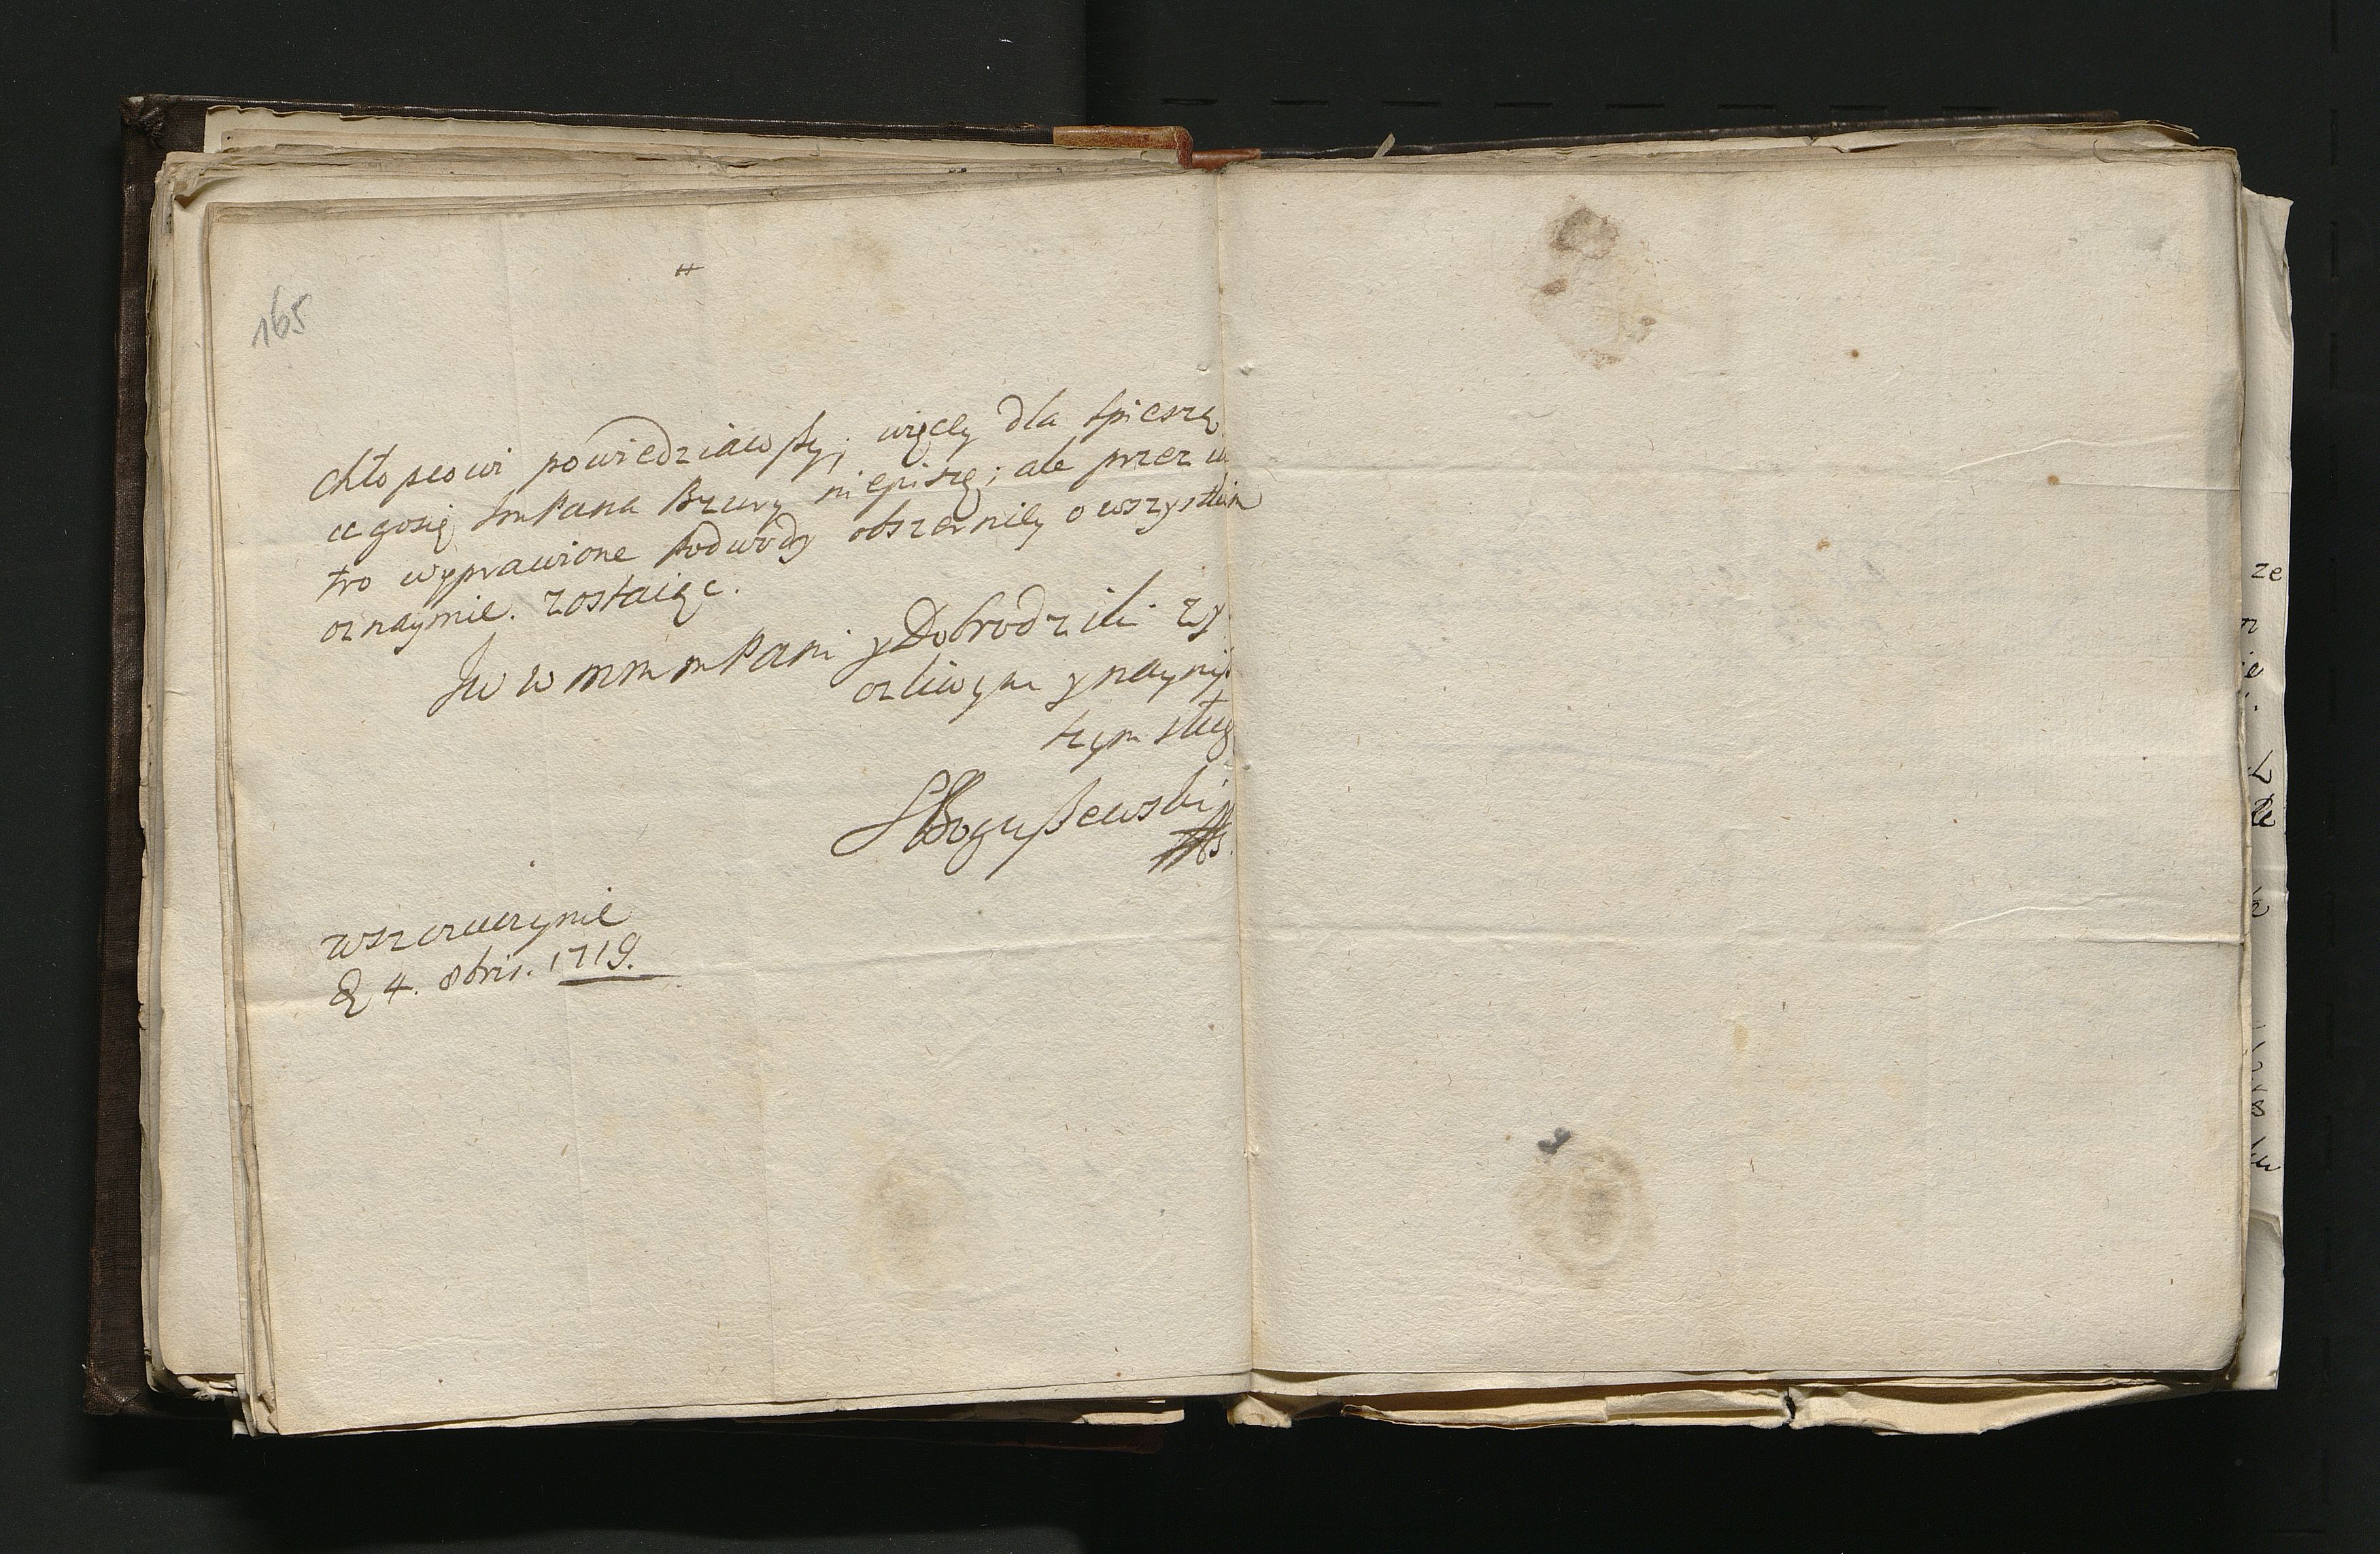 #
165
chłopcowi powiedziawszy; więcy dla spieszą
cegosię Jm Pana Bzury niepiszę; ale przez
tro wyprawione podwody obszerniey o wszystkim
oznaymie. zostaiąc.
Jw w m m m Pani y Dobrodziki zy
czliwym y nayniż
szym sług
SBogußewski
wszczuczynie
D 4. 8bris. 1719.